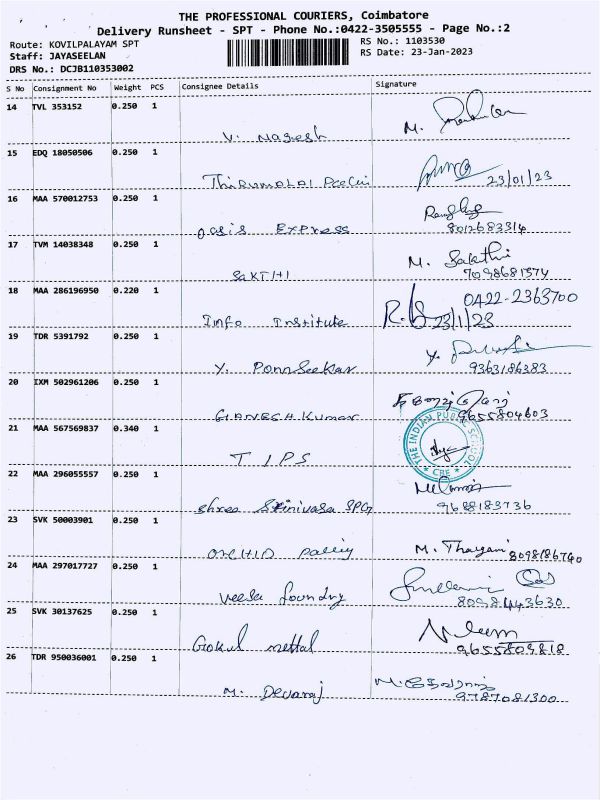 THE PROFESSIONAL COURIERS, Coimbatore
Delivery Runsheet - SPT - Phone No.:0422-3505555 - Page No.:2
Route: KOVILPALAYAM SPT
RS No.: 1103530
Staff: JAYASEELAN
RS Date: 23-Jan-2023
DRS No.: DCJB110353002
S No Consignment No Weight PCS Consignee Details Signature
14 TVL 353152 0.250 1
V. Nagesh M.
15 EDQ 18050506 0.250 1
Thirumalai 23/01/23
16 MAA 570012753 0.250 1
oasis Express 8012683314
17 TVM 14038348 0.250 1
M. Sakthi
SAKTHI 7098681574
18 MAA 286196950 0.220 1
0422-2363700
Info Institute 23/1/23
19 TDR 5391792 0.250 1
Y. Ponnseekar 9363186383
20 IXM 502961206 0.250 1
GANESH Kumar 9655804603
21 MAA 567569837 0.340 1
THE INDIAN PUBLIC SCHOOL
CBE
T I P S
22 MAA 296055557 0.250 1
Shree Srinivasa 9688183736
23 SVK 50003901 0.250 1
ORCHID M. Thayani 8098186740
24 MAA 297017727 0.250 1
Veesa foundry 8098443630
25 SVK 30137625 0.250 1
Gokul mettal 9655809818
26 TDR 950036001 0.250 1
M. Devaraj 9787081300